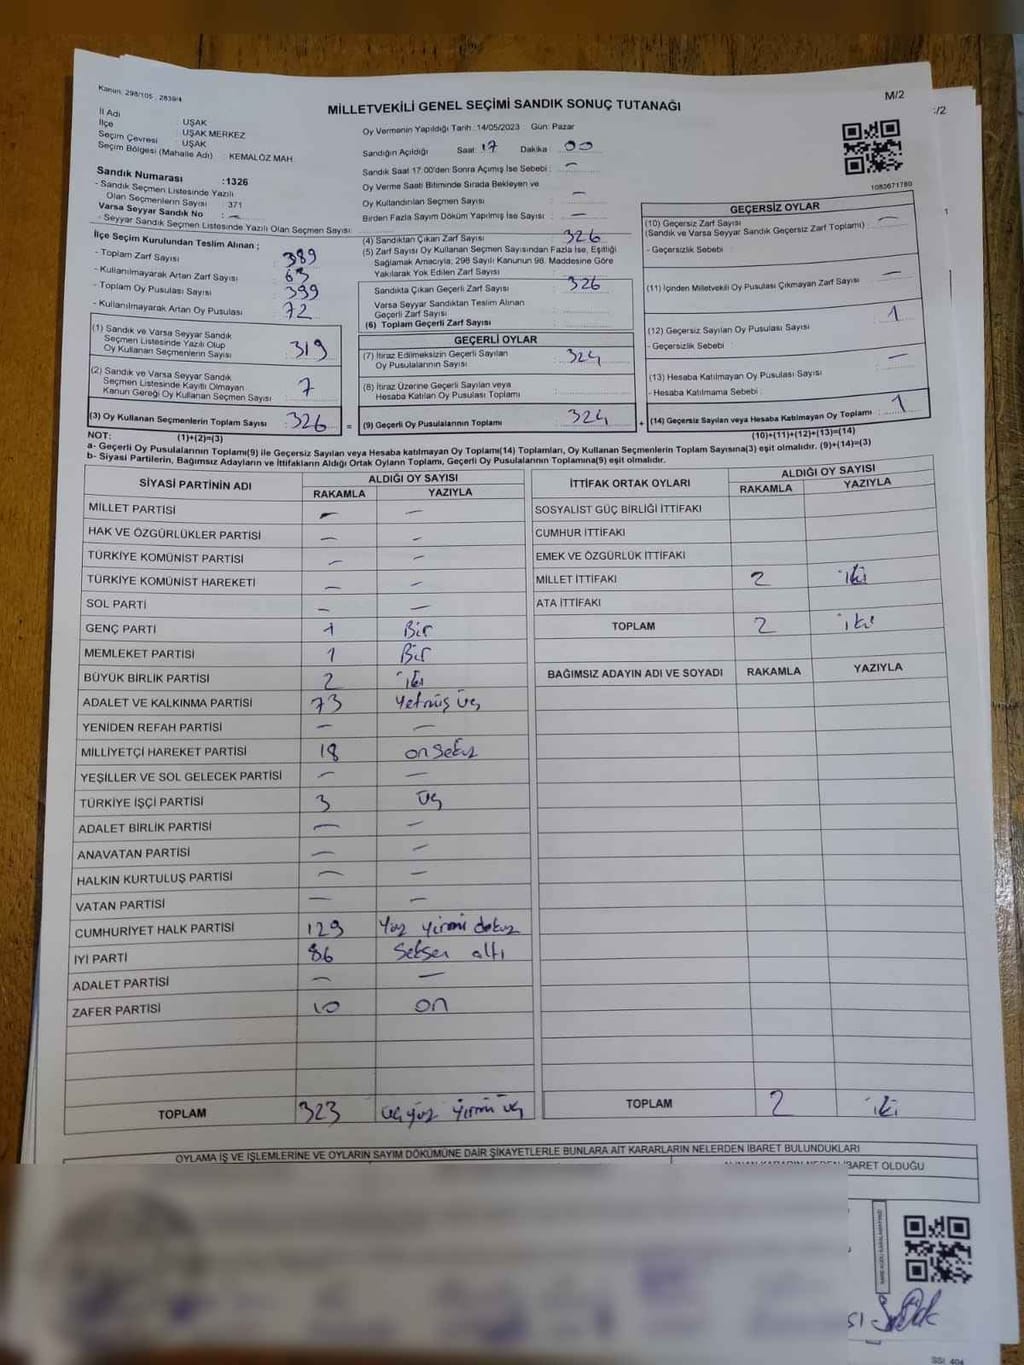 Kanun: 298/105 , 2839/4
M/2
:/2
MİLLETVEKİLİ GENEL SEÇİMİ SANDIK SONUÇ TUTANAĞI
İl Adı : UŞAK
İlçe : UŞAK MERKEZ
Seçim Çevresi : UŞAK
Seçim Bölgesi (Mahalle Adı) : KEMALÖZ MAH
Oy Vermenin Yapıldığı Tarih :14/05/2023 Gün: Pazar
Sandığın Açıldığı Saat: 17 Dakika 00
Sandık Saat 17:00'den Sonra Açılmış İse Sebebi : —
Oy Verme Saati Bitiminde Sırada Bekleyen ve
Oy Kullandırılan Seçmen Sayısı : —
Birden Fazla Sayım Döküm Yapılmış İse Sayısı : —
1083671780
Sandık Numarası :1326
- Sandık Seçmen Listesinde Yazılı
Olan Seçmenlerin Sayısı : 371
Varsa Seyyar Sandık No : —
- Seyyar Sandık Seçmen Listesinde Yazılı Olan Seçmen Sayısı :
İlçe Seçim Kurulundan Teslim Alınan ;
- Toplam Zarf Sayısı : 389
- Kullanılmayarak Artan Zarf Sayısı : 63
- Toplam Oy Pusulası Sayısı : 399
- Kullanılmayarak Artan Oy Pusulası : 72
(1) Sandık ve Varsa Seyyar Sandık
Seçmen Listesinde Yazılı Olup
Oy Kullanan Seçmenlerin Sayısı : 319
(2) Sandık ve Varsa Seyyar Sandık
Seçmen Listesinde Kayıtlı Olmayan
Kanun Gereği Oy Kullanan Seçmen Sayısı : 7
(3) Oy Kullanan Seçmenlerin Toplam Sayısı : 326
(4) Sandıktan Çıkan Zarf Sayısı : 326
(5) Zarf Sayısı Oy Kullanan Seçmen Sayısından Fazla İse, Eşitliği
Sağlamak Amacıyla; 298 Sayılı Kanunun 98. Maddesine Göre
Yakılarak Yok Edilen Zarf Sayısı :
Sandıkta Çıkan Geçerli Zarf Sayısı : 326
Varsa Seyyar Sandıktan Teslim Alınan
Geçerli Zarf Sayısı :
(6) Toplam Geçerli Zarf Sayısı :
GEÇERLİ OYLAR
(7) İtiraz Edilmeksizin Geçerli Sayılan
Oy Pusulalarının Sayısı : 324
(8) İtiraz Üzerine Geçerli Sayılan veya
Hesaba Katılan Oy Pusulası Toplamı :
= (9) Geçerli Oy Pusulalarının Toplamı : 324
GEÇERSİZ OYLAR
(10) Geçersiz Zarf Sayısı : —
(Sandık ve Varsa Seyyar Sandık Geçersiz Zarf Toplamı)
- Geçersizlik Sebebi :
(11) İçinden Milletvekili Oy Pusulası Çıkmayan Zarf Sayısı : —
(12) Geçersiz Sayılan Oy Pusulası Sayısı : 1
- Geçersizlik Sebebi :
(13) Hesaba Katılmayan Oy Pusulası Sayısı : —
- Hesaba Katılmama Sebebi :
+ (14) Geçersiz Sayılan veya Hesaba Katılmayan Oy Toplamı : 1
NOT: (1)+(2)=(3)
(10)+(11)+(12)+(13)=(14)
a- Geçerli Oy Pusulalarının Toplamı(9) ile Geçersiz Sayılan veya Hesaba katılmayan Oy Toplamı(14) Toplamları, Oy Kullanan Seçmenlerin Toplam Sayısına(3) eşit olmalıdır. (9)+(14)=(3)
b- Siyasi Partilerin, Bağımsız Adayların ve İttifakların Aldığı Ortak Oyların Toplamı, Geçerli Oy Pusulalarının Toplamına(9) eşit olmalıdır.
SİYASİ PARTİNİN ADI ALDIĞI OY SAYISI
RAKAMLA YAZIYLA
MİLLET PARTİSİ — —
HAK VE ÖZGÜRLÜKLER PARTİSİ — —
TÜRKİYE KOMÜNİST PARTİSİ — —
TÜRKİYE KOMÜNİST HAREKETİ — —
SOL PARTİ — —
GENÇ PARTİ 1 Bir
MEMLEKET PARTİSİ 1 Bir
BÜYÜK BİRLİK PARTİSİ 2 iki
ADALET VE KALKINMA PARTİSİ 73 Yetmiş üç
YENİDEN REFAH PARTİSİ — —
MİLLİYETÇİ HAREKET PARTİSİ 18 on sekiz
YEŞİLLER VE SOL GELECEK PARTİSİ — —
TÜRKİYE İŞÇİ PARTİSİ 3 üç
ADALET BİRLİK PARTİSİ — —
ANAVATAN PARTİSİ — —
HALKIN KURTULUŞ PARTİSİ — —
VATAN PARTİSİ — —
CUMHURİYET HALK PARTİSİ 129 Yüz yirmi dokuz
İYİ PARTİ 86 Seksen altı
ADALET PARTİSİ — —
ZAFER PARTİSİ 10 on
TOPLAM 323 üç yüz yirmi üç
İTTİFAK ORTAK OYLARI ALDIĞI OY SAYISI
RAKAMLA YAZIYLA
SOSYALİST GÜÇ BİRLİĞİ İTTİFAKI
CUMHUR İTTİFAKI
EMEK VE ÖZGÜRLÜK İTTİFAKI
MİLLET İTTİFAKI 2 iki
ATA İTTİFAKI
TOPLAM 2 iki
BAĞIMSIZ ADAYIN ADI VE SOYADI RAKAMLA YAZIYLA
TOPLAM 2 iki
OYLAMA İŞ VE İŞLEMLERİNE VE OYLARIN SAYIM DÖKÜMÜNE DAİR ŞİKAYETLERLE BUNLARA AİT KARARLARIN NELERDEN İBARET BULUNDUKLARI
İBARET OLDUĞU